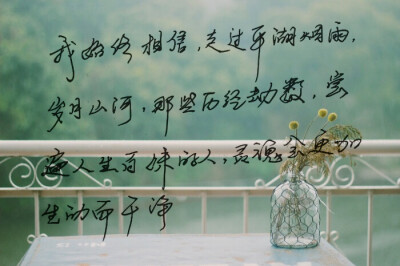 我始终相信,走过平湖烟雨,
岁月山河,那些历经劫数,尝
遍人生百味的人,灵魂会更加
生动而干净